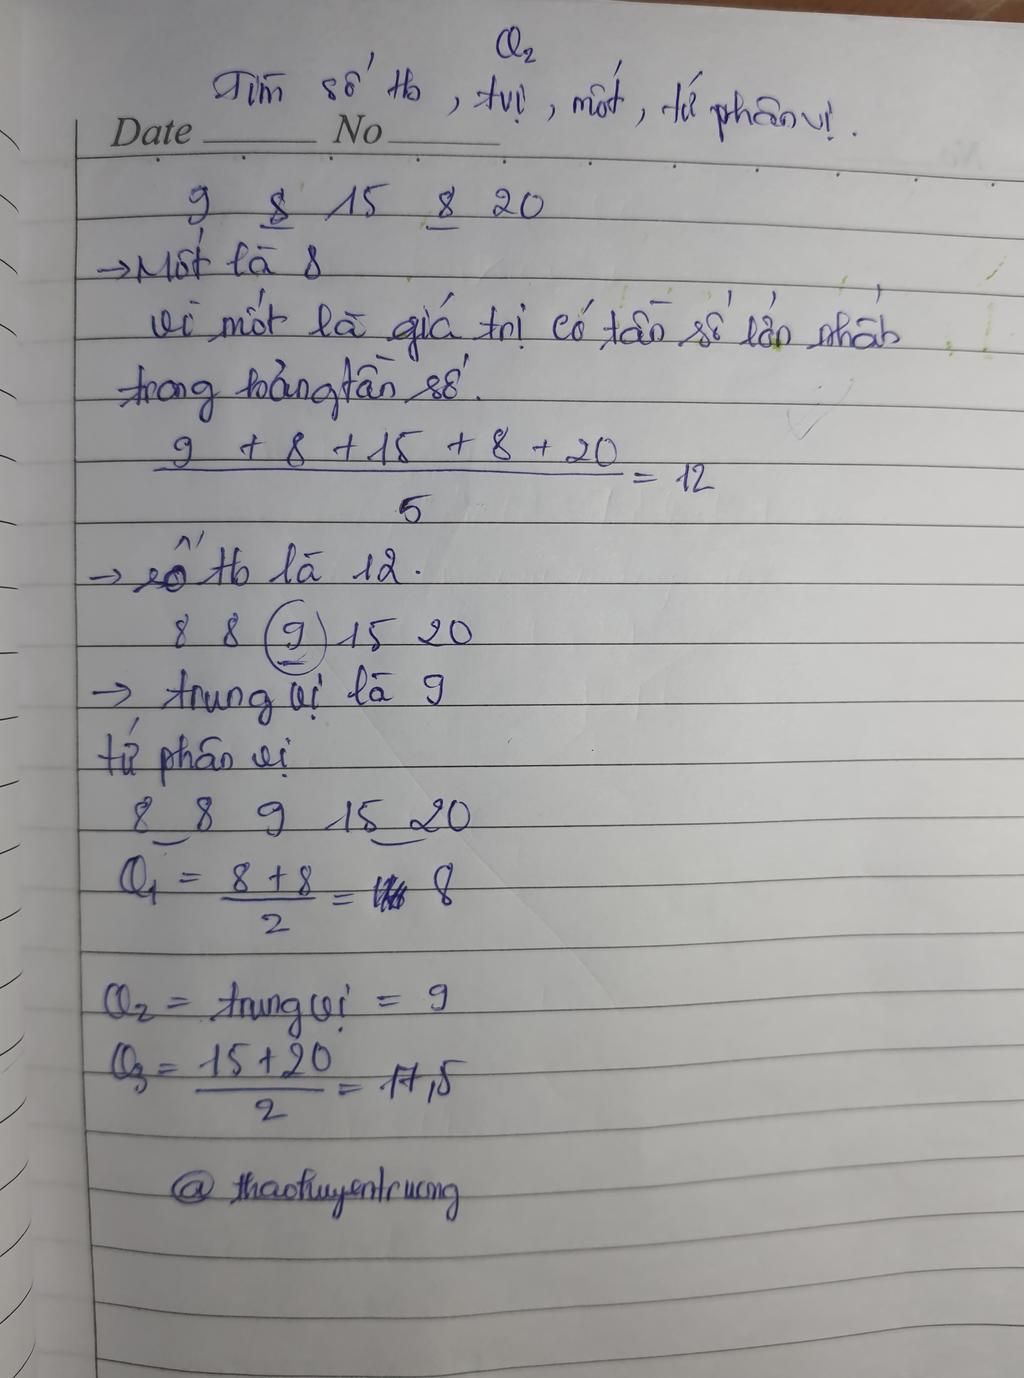 Q₂
Tìm số tb, tvị, mốt, tứ phân vị.
Date No
9 8 15 8 20
→ Mốt là 8
vì mốt là giá trị có tần số lớn nhất
trong bảng tần số.
9 + 8 + 15 + 8 + 20
= 12
5
→ số tb là 12.
8 8 9 15 20
→ trung vị là 9
tứ phân vị
8 8 9 15 20
Q₁ = 8 + 8 / 2 = 8
Q₂ = trung vị = 9
Q₃ = 15 + 20 / 2 = 17,5
@ thaotuyentruong